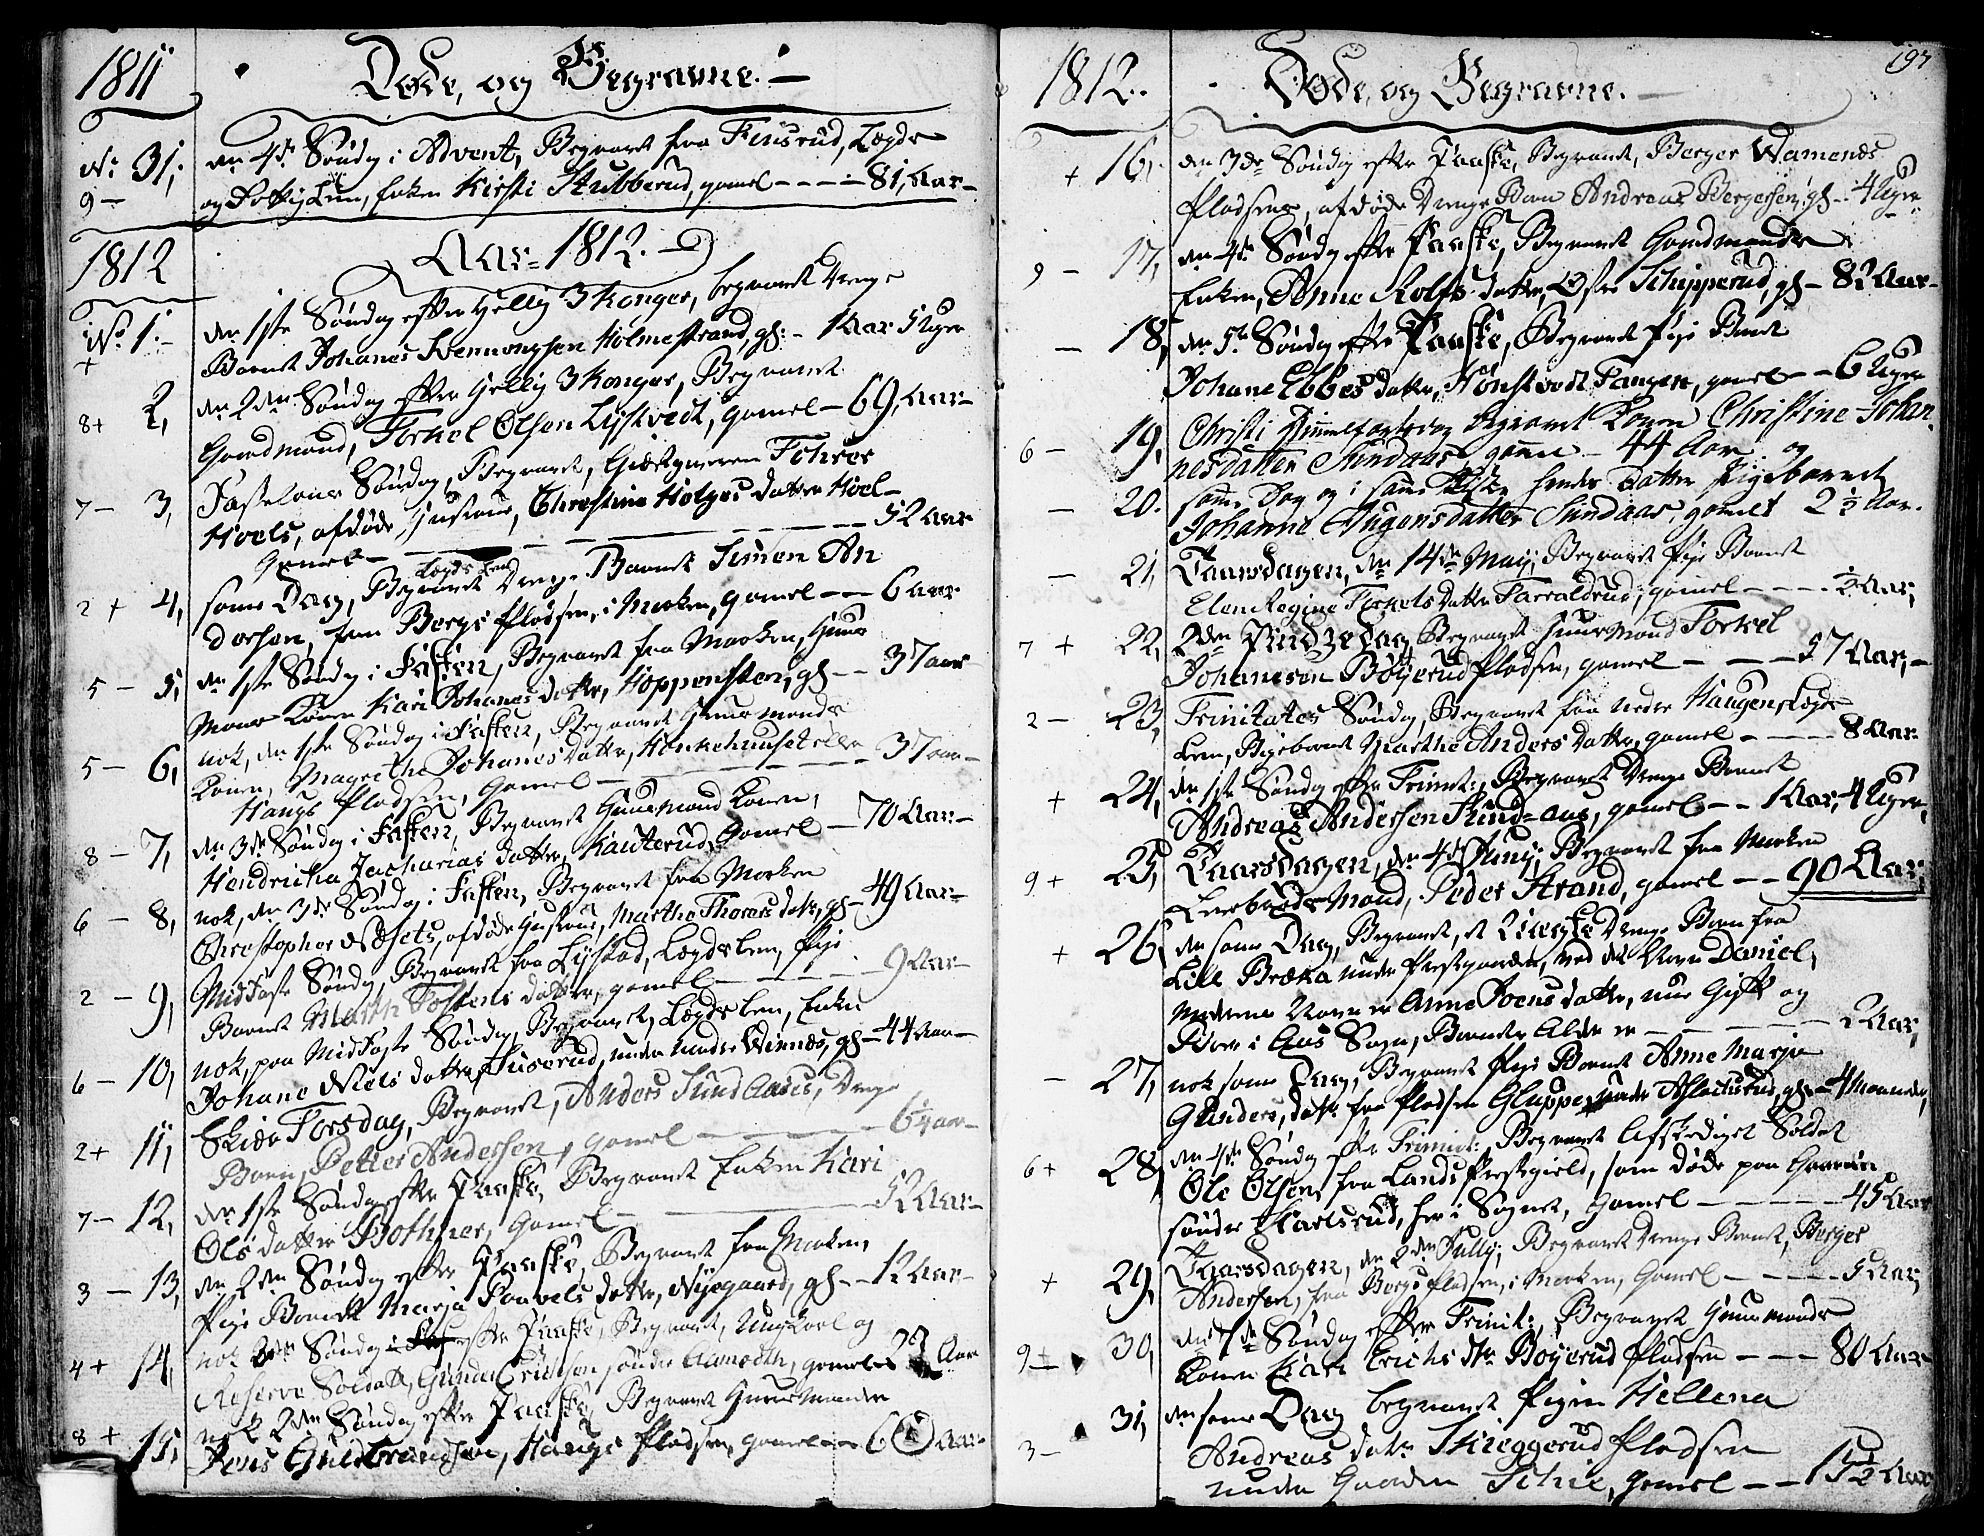 1811
Døde, og Begravne. —
No 31,
9 —
den 4de Søndag i Advent, Begravet fra Finsrud, Lægds
og Fattig Lem, Enken Kirsti Stubberud, gamel ---- 81, Aar —
1812
Aar = 1812.
No 1.
+
den 1ste Søndag efter Hellig 3 Konger, begravet Drenge
Barnet Johanes Svennongsen Holmestrand, gl: — 1 Aar 5 Uger
8 + 2,
den 2den Søndag efter Hellig 3 Konger, Begravet
Gaardmand, Torkel Olsen Lystvedt, gamel — 69, Aar —
7 — 3,
Fastelavns Søndag, Begravet, Giestgiveren Tohrer
Hoels, afdøde Hustrue, Christine Holges datter Hoel —
Gamel — — — — — 52 Aar
Lægds Lem
2 + 4,
same Dag, Begravet Drenge Barnet Simen An
dersen, fra Bergs Pladsen, i Marken, gamel — — 6 Aar
5 — 5,
den 1ste Søndag i Fasten, Begravet fra Marken, Huus
Mands Konen Kari Johanes datter, Hoppensten, gl — — 37 aar
5 — 6,
nok, den 1ste Søndag i Fasten, Begravet Huusmands
Konen, Magrethe Johanes datter, Honkehuuset eller
Haugs Pladsen, Gamel — — — — 37 aar —
8 — 7,
den 3de Søndag i Fasten, Begravet Huusmand Konen,
Hendricha Zacharias datter, Kauterud, Gamel — 70 Aar —
6 — 8,
nok, den 3de Søndag i Fasten, Begravet fra Marken
Christopher Næsets, afdøde Hustrue, Marthe Thores datr, gl — 49 Aar —
2 — 9,
Midfaste Søndag, Begravet fra Lystad, Lægds Lem, Pige
Barnet Marth Tostens datter, gamel — — — 9 Aar —
6 — 10,
nok, paa Midfaste Søndag, Begravet, Lægds Lem, Enke
Johane Niels datter, Huserud, under Nedre Winnæs, gl — 44 Aar —
2 + 11,
Skiær Torsdag, Begravet, Anders Sund Aases, Drenge
Barn, Petter Andersen, gamel — — — 6 1/4 aar —
7 — 12,
den 1ste Søndag efter Paaske, Begravet Enken Kari
Ols datter Bothner, Gamel — — — — 52 Aar —
3 — 13,
den 2den Søndag efter Paaske, Begravet fra Marken,
Pige Barnet Marja Povels datter, Nyegaard, gl — — 12 Aar —
4 + 14,
nok 2den Søndag efter Paaske, Begravet, Ungkarl og
Reserve Soldatt, Gunder Erichsen søndre Aamodth, gamel — Aar
8 + 15,
nok 2den Søndag efter Paaske, Begravet Huusmanden
Jens Guldbrandsen, Haugs Pladsen, gamel — — Aar —
1812.
Døde, og Begravne. —
193
+ 16,
den 3de Søndag efter Paaske, Begravet, Berger Wamenæs
Pladsens, afdøde Drenge Barn Andreas Bergersen, gl — 4 Uger
9 — 17,
den 4de Søndag efter Paaske, Begravet Gaardmands
Enken, Anne Rolfs datter, Østre Schipperud, gl — 82 Aar —
— 18,
den 5te Søndag efter Paaske, Begravet Pige Barnet
Johane Ebbes datter, Hønstvedt Tangen, gamel — — 6 Uger
6 — 19,
Christi Himmelfartsdag begravet Konen Christine Johan
nesdatter Sundaas gamel — 44 Aar og
— 20.
samme Dag og i samme Kiste hendes Datter Pigebarnet
Johanne Augensdatter Sundaas, gamel 2 1/2 Aar.
— 21,
Taarsdagen, den 14de May, Begravet Pige Barnet
Elen Regine Torkels datter Tarraldrud, gamel — — — 1/2 Aar,
7 + 22,
2den Pindze Dag, Begravet Huusmand Torkel
Johanesen Böyerud Pladsen, gamel — — — 57 Aar, —
2 — 23,
Trinitates Søndag, Begravet fra nedre Haugen, Lægds
Lem, Pigebarnet Marthe Anders datter, gamel — — — 8 Aar
+ 24,
den 1ste Søndag efter Trinit:, Begravet Drenge Barnet
Andreas Andersen Sund-aas, gamel — — 1 Aar, 4 Uger,
9 + 25,
Taarsdagen, den 4de Juny, Begravet fra Marken
Leverbrøds Mand, Peder Strand, gamel — — 90 Aar,
+ 26,
den same Dag, Begravet, et Uægte Drenge Barn fra
Lill Bræka under Præstegaarden, ved det Navn Daniel,
Moderens Navn er Anne Joens datter, nue Gift og
Boer i Aas Sogn, Barnets Alder er — — — — 2 Aar,
— 27,
nok same Dag, Begravet Pige Barnet Anne Marja
Gunders, datr fra Pladsen Gluppe under Aslacksrud, gl — 4 Maaneder,
6 + 28,
den 4de Søndag efter Trinit:, Begravet Afskediget Soldat
Ole Olsen, fra Lands Præstegield, som døde paa Gaarden
søndre Karlsrud, her i Sognet, Gamel — — — — 45 Aar
+ 29,
Taarsdagen, den 2den July, Begravet Drenge Barnet, Berger
Andersen, fra Bergs Pladsen, i Marken, Gamel — — — — 5 Aar,
9 — 30,
den 7de Søndag efter Trinit:, Begravet Huusmands
Konen Kari Erichs dtr Böyerud Pladsen — — — 80 Aar —
3 — 31,
den same Dag begravet Pigen Hellena
Andreas datr Skreggerud Pladsen
under Gaarden Schie, gamel — — 13 1/2 Aar